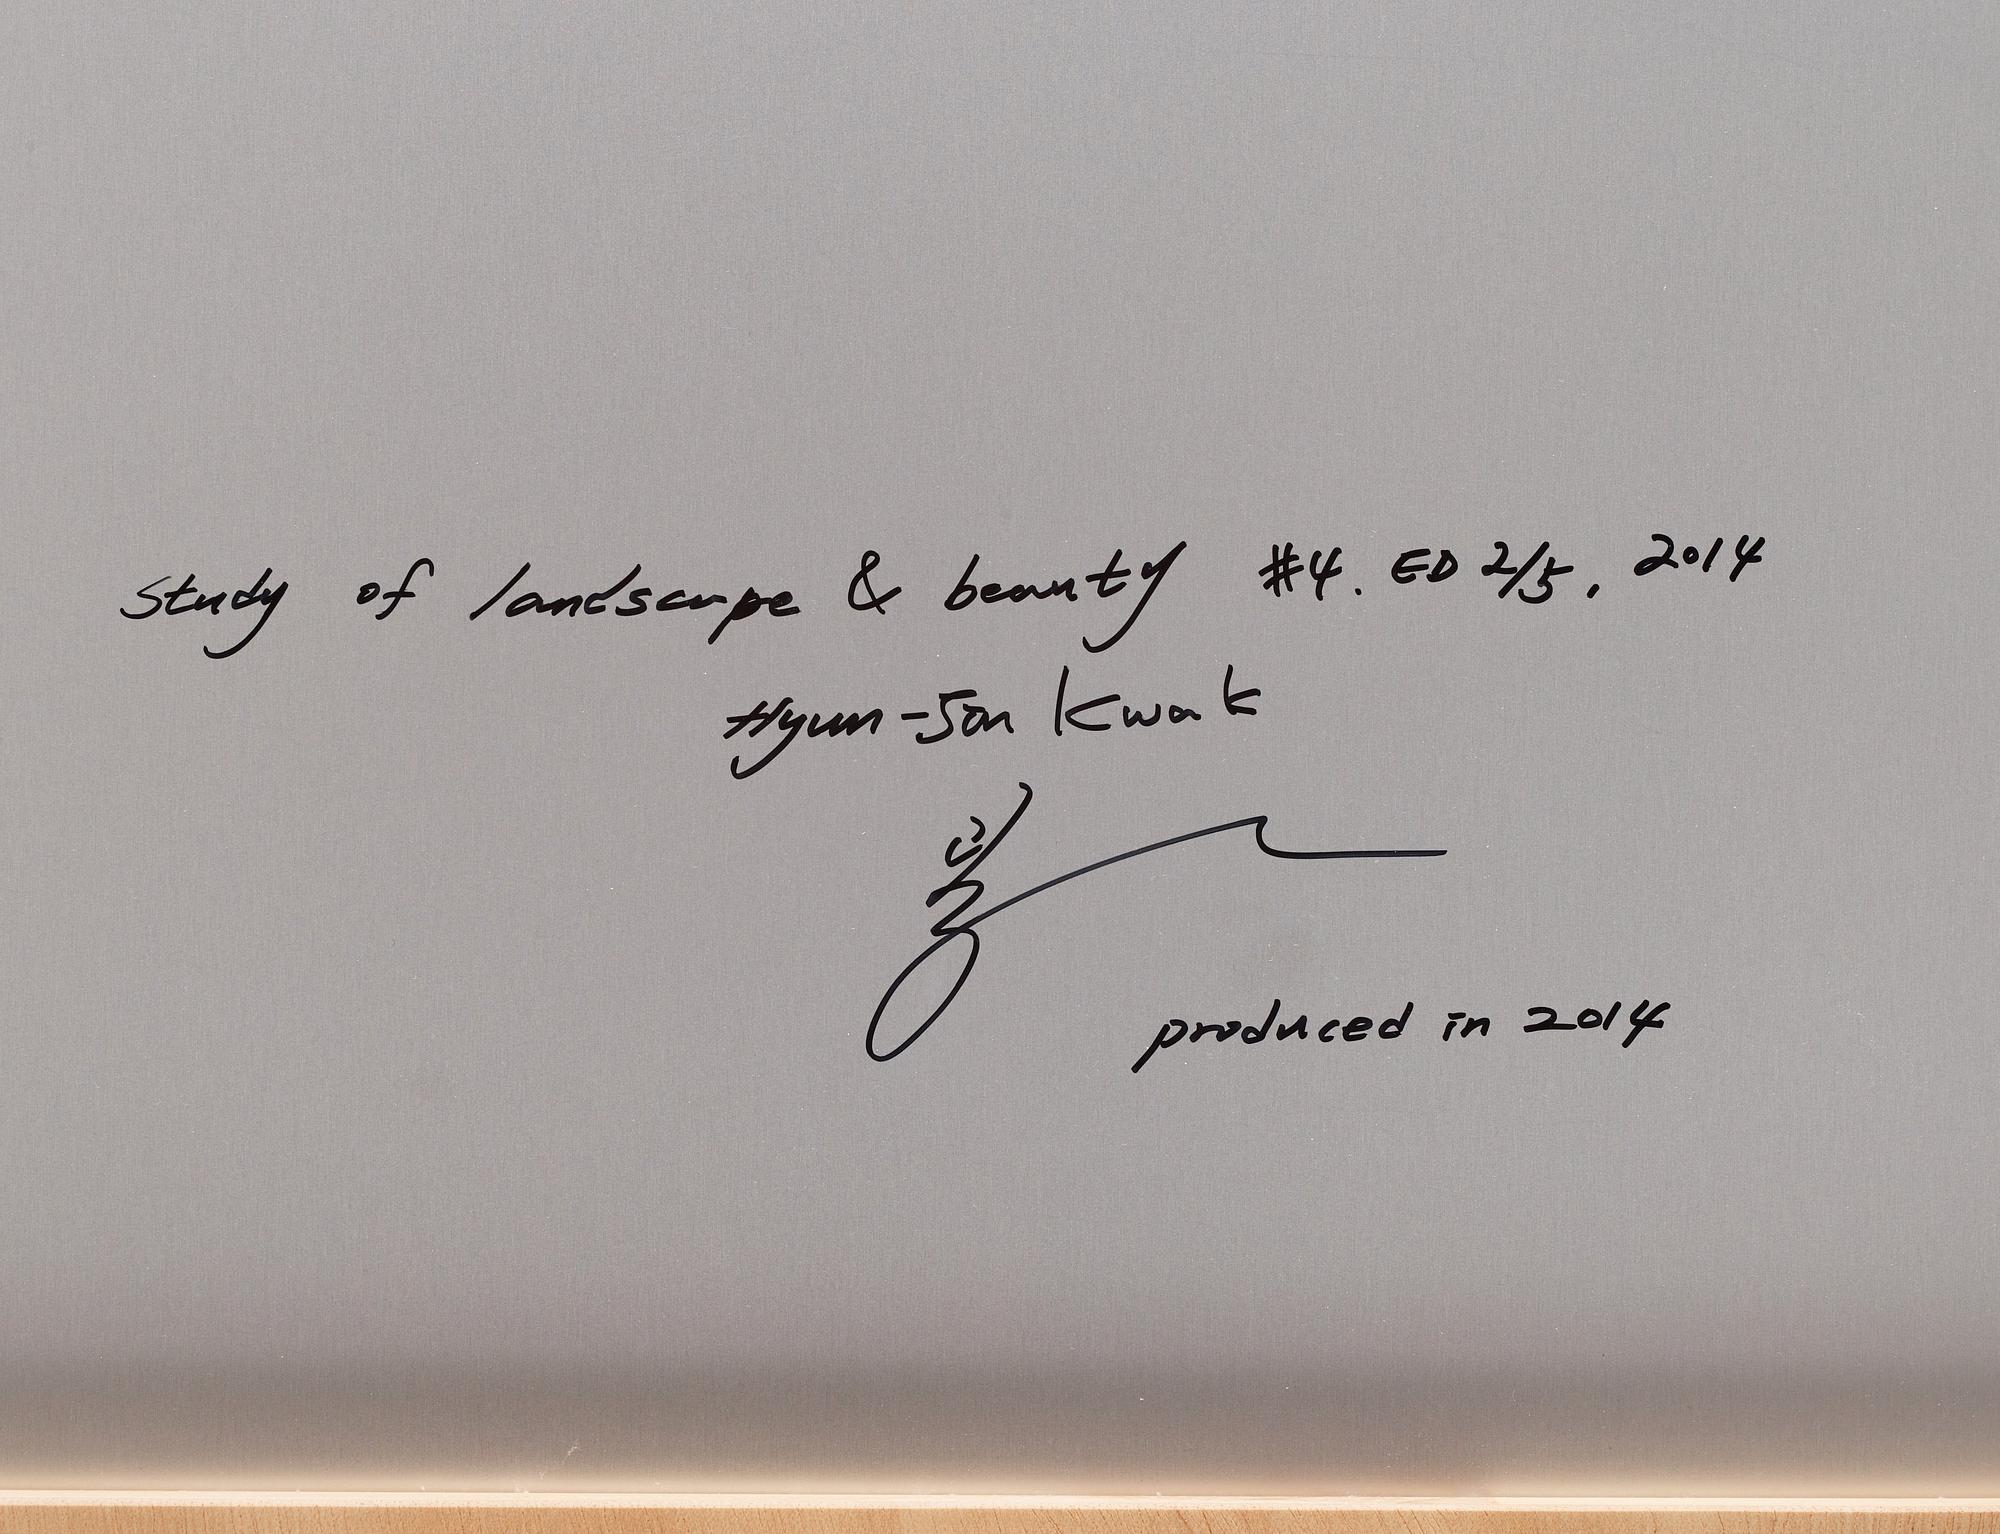 study of landscape & beauty #4. ED 2/5, 2014
Hyun-Jin Kwak
produced in 2014